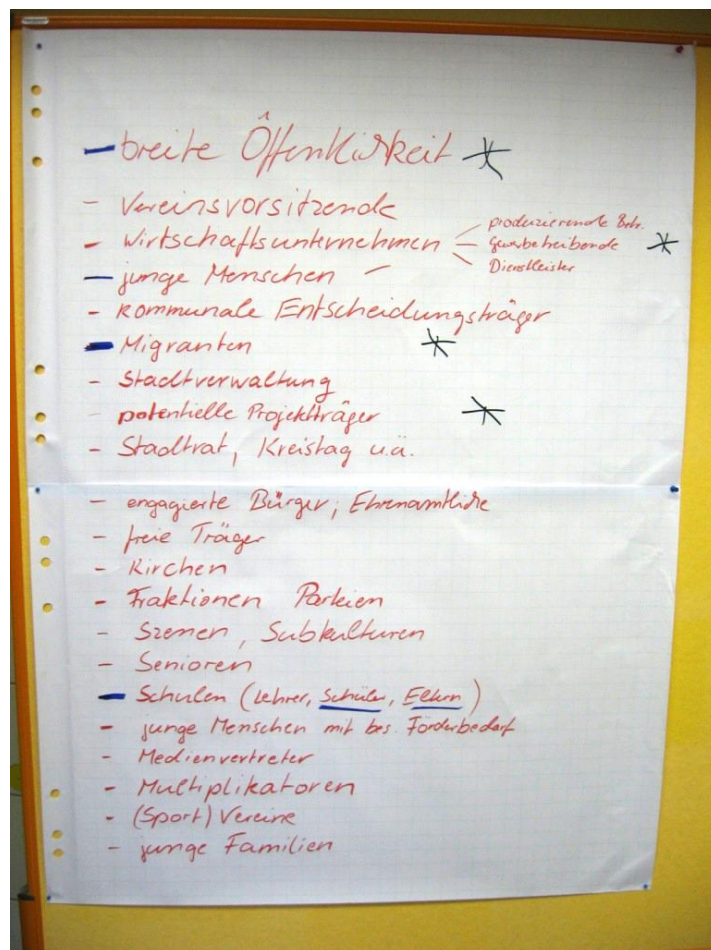 - breite Öffentlichkeit
- Vereinsvorsitzende
- Wirtschaftsunternehmen - produzierende Betr.
Gewerbetreibende
Dienstleister
- junge Menschen -
- kommunale Entscheidungsträger
- Migranten
- Stadtverwaltung
- potentielle Projektträger
- Stadtrat, Kreistag u.ä.
- engagierte Bürger, Ehrenamtliche
- freie Träger
- Kirchen
- Fraktionen Parteien
- Szenen, Subkulturen
- Senioren
- Schulen (Lehrer, Schüler, Eltern)
- junge Menschen mit bes. Förderbedarf
- Medienvertreter
- Multiplikatoren
- (Sport) Vereine
- junge Familien